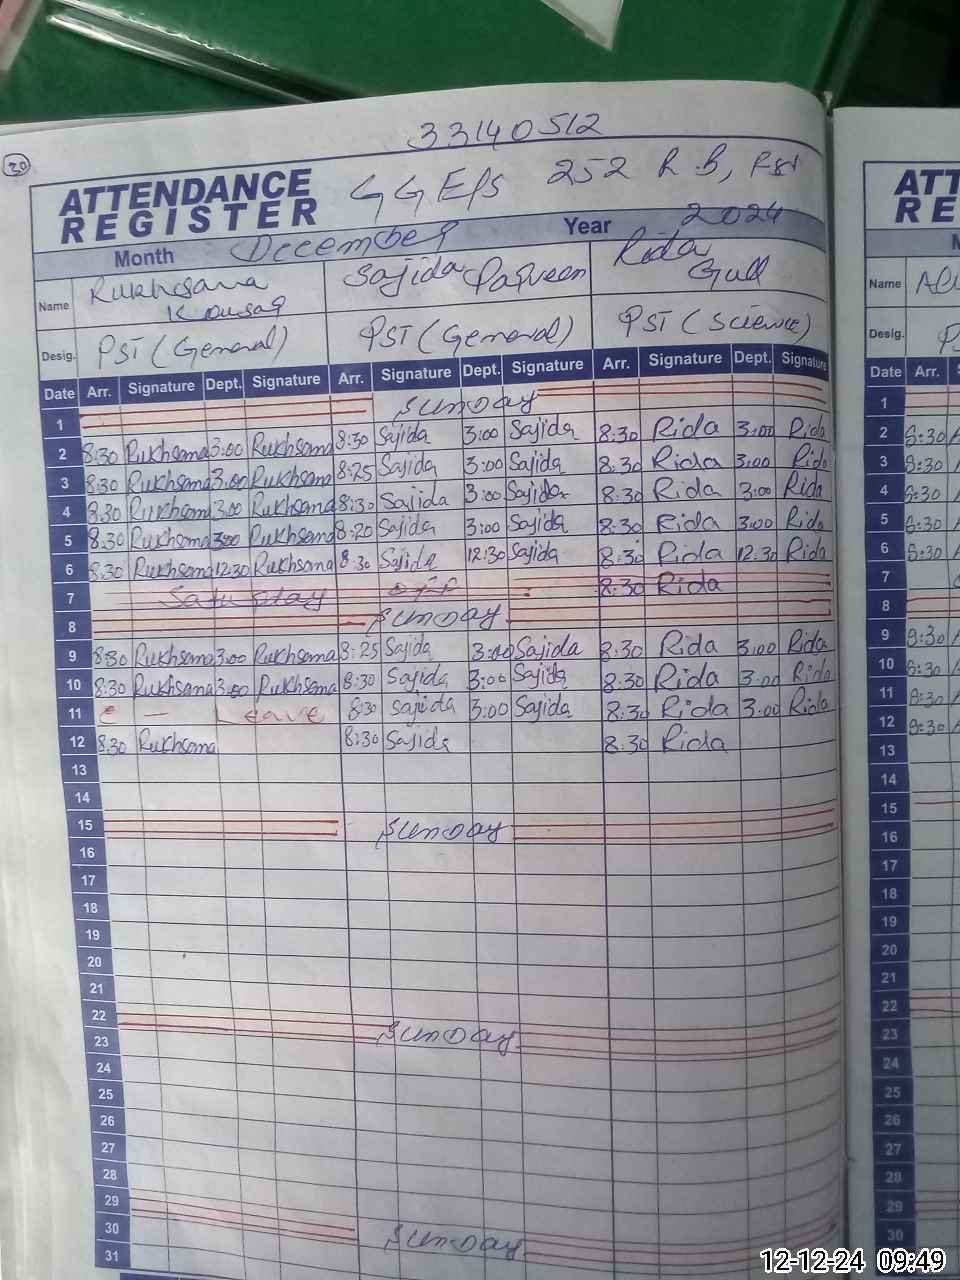 33140512
30
ATTENDANCE REGISTER GGEPS 252 R B, Fsd
Month December Year 2024
Name Rukhsana Kousar Sajida Parveen Rida Gull
Desig. PST (General) PST (General) PST (Science)
Date Arr. Signature Dept. Signature Arr. Signature Dept. Signature Arr. Signature Dept. Signature
1 Sunday
2 8:30 Rukhsana 3:00 Rukhsana 8:30 Sajida 3:00 Sajida 8:30 Rida 3:00 Rida
3 8:30 Rukhsana 3:00 Rukhsana 8:25 Sajida 3:00 Sajida 8:30 Rida 3:00 Rida
4 8:30 Rukhsana 3:00 Rukhsana 8:30 Sajida 3:00 Sajida 8:30 Rida 3:00 Rida
5 8:30 Rukhsana 3:00 Rukhsana 8:20 Sajida 3:00 Sajida 8:30 Rida 3:00 Rida
6 8:30 Rukhsana 12:30 Rukhsana 8:30 Sajida 12:30 Sajida 8:30 Rida 12:30 Rida
7 Saturday off 8:30 Rida
8 Sunday
9 8:30 Rukhsana 3:00 Rukhsana 8:25 Sajida 3:00 Sajida 8:30 Rida 3:00 Rida
10 8:30 Rukhsana 3:00 Rukhsana 8:30 Sajida 3:00 Sajida 8:30 Rida 3:00 Rida
11 C — Leave 8:30 Sajida 3:00 Sajida 8:30 Rida 3:00 Rida
12 8:30 Rukhsana 8:30 Sajida 8:30 Rida
13
14
15 Sunday
16
17
18
19
20
21
22 Sunday
23
24
25
26
27
28
29 Sunday
30
31
Name
Desig.
Date Arr.
1
2 8:30
3 8:30
4 8:30
5 8:30
6 8:30
7
8
9 8:30
10 8:30
11 8:30
12 8:30
13
14
15
16
17
18
19
20
21
22
23
24
25
26
27
28
29
30
12-12-24 09:49